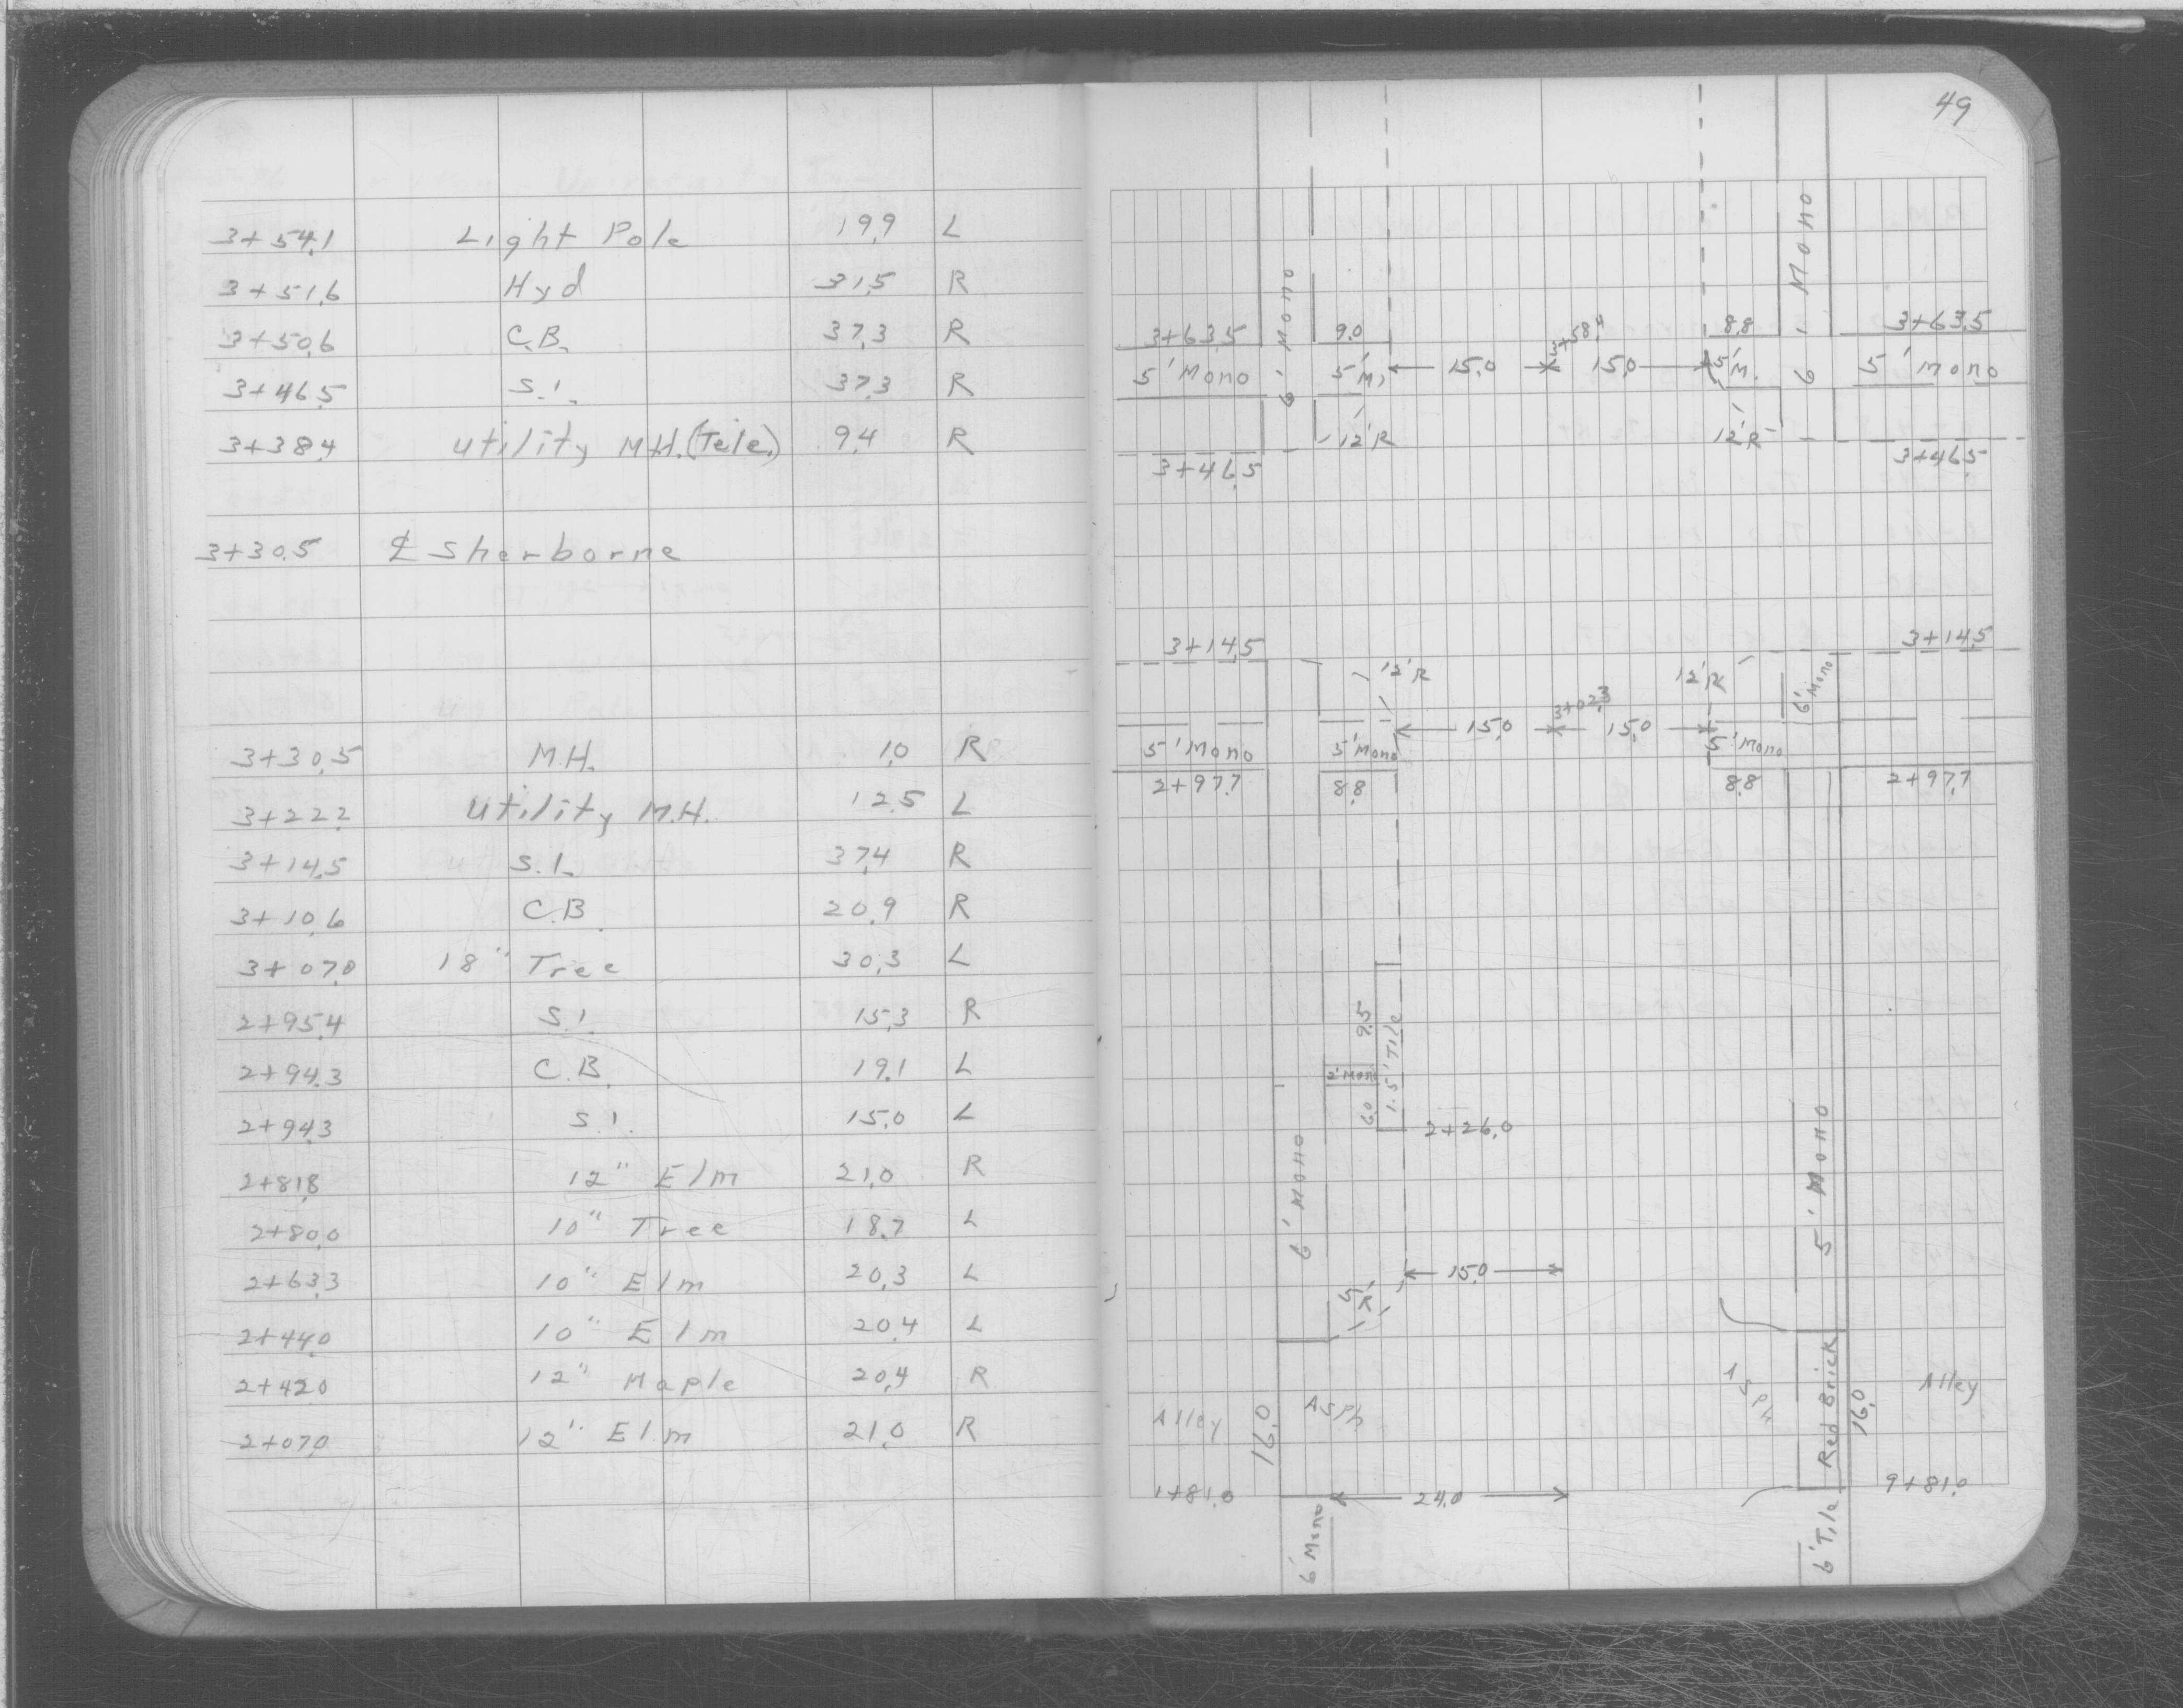 49
3+54.1 Light Pole 19.9 L
3+51.6 Hyd 31.5 R
3+50.6 C.B. 37.3 R
3+46.5 S.I. 37.3 R
3+38.4 Utility M.H. (Tele.) 9.4 R
3+30.5 ℄ Sherborne
3+30.5 M.H. 1.0 R
3+22.2 Utility M.H. 12.5 L
3+14.5 S.I. 37.4 R
3+10.6 C.B. 20.9 R
3+07.0 18" Tree 30.3 L
2+95.4 S.I. 15.3 R
2+94.3 C.B. 19.1 L
2+94.3 S.I. 15.0 L
2+81.8 12" Elm 21.0 R
2+80.0 10" Tree 18.7 L
2+63.3 10" Elm 20.3 L
2+44.0 10" Elm 20.4 L
2+42.0 12" Maple 20.4 R
2+07.0 12" Elm 21.0 R
6' Mono
6' Mono
3+63.5 9.0 3+58.4 8.8 3+63.5
5' Mono 5' M. 15.0 15.0 5' M. 5' Mono
12'R 12'R
3+46.5 3+46.5
3+14.5 3+14.5
12'R 12'R 6' Mono
15.0 3+02.3 15.0
5' Mono 5' Mono 5' Mono
2+97.7 8.8 8.8 2+97.7
9.5
1.5' Tile
2' Mono
6.0
2+26.0
6' Mono 5' Mono
15.0
5'R
Alley 16.0 Asph Asph Red Brick 16.0 Alley
1+81.0 24.0 9+81.0
6' Mono 6' Tile